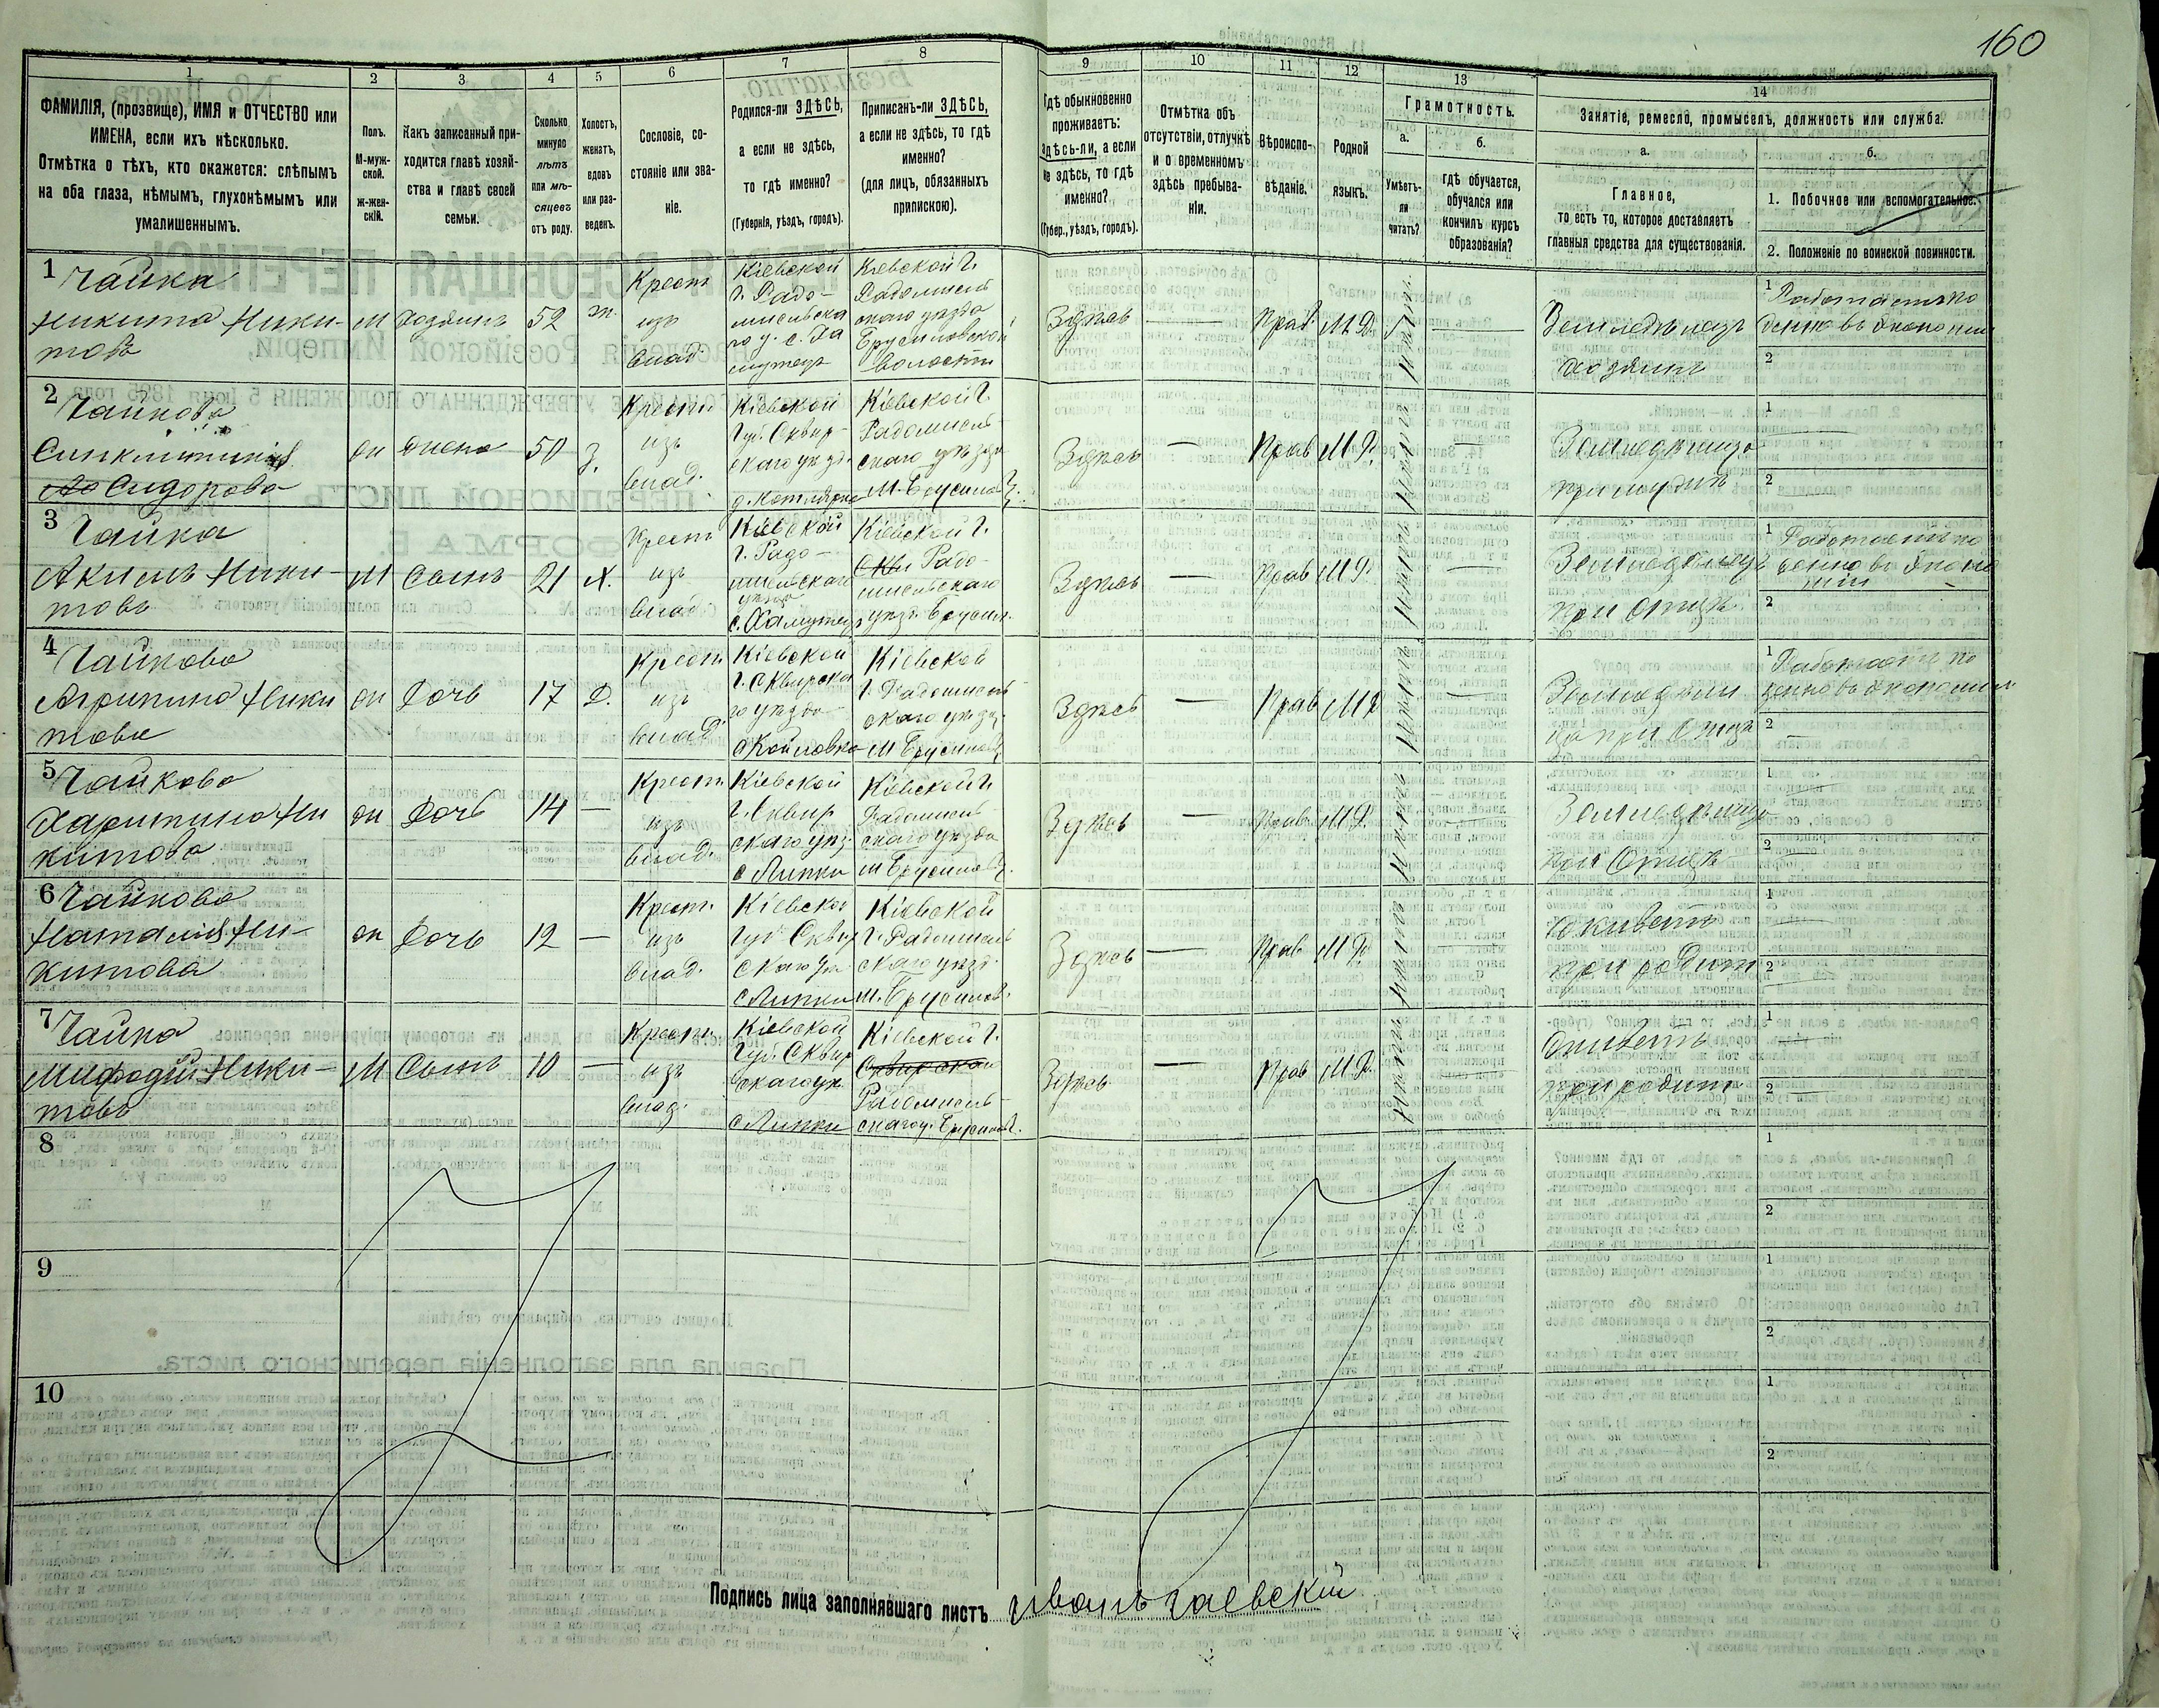 160
1
2
3
4
5
6
7
8
9
10
11
12
13
14
ФАМИЛІЯ, (прозвище), ИМЯ и ОТЧЕСТВО или
ИМЕНА, если ихъ нѣсколько.
Отмѣтка о тѣхъ, кто окажется: слѣпымъ
на оба глаза, нѣмымъ, глухонѣмымъ или
умалишеннымъ.
Полъ.
М-муж-
ской.
ж-жен-
скій.
Какъ записанный при-
ходится главѣ хозяй-
ства и главѣ своей
семьи.
Сколько
минуло
лѣтъ
или мѣ-
сяцевъ
отъ роду.
Холостъ,
женатъ,
вдовъ
или раз-
веденъ.
Сословіе, со-
стояніе или зва-
ніе.
Родился-ли ЗДѢСЬ,
а если не здѣсь,
то гдѣ именно?
(Губернія, уѣздъ, городъ).
Приписанъ-ли ЗДѢСЬ,
а если не здѣсь, то гдѣ
именно?
(для лицъ, обязанныхъ
припискою).
Гдѣ обыкновенно
проживаетъ:
здѣсь-ли, а если
не здѣсь, то гдѣ
именно?
(Губер., уѣздъ, городъ).
Отмѣтка объ
отсутствіи, отлучкѣ
и о временномъ
здѣсь пребыва-
ніи.
Вѣроиспо-
вѣданіе.
Родной
языкъ.
Грамотность.
а.
б.
Умѣетъ-
ли
читать?
гдѣ обучается,
обучался или
кончилъ курсъ
образованія?
Занятіе, ремесло, промыселъ, должность или служба.
а.
б.
Главное,
то есть то, которое доставляетъ
главныя средства для существованія.
1. Побочное или вспомогательное.
2. Положеніе по воинской повинности.
1 Чайка
Никита Ники-
товъ
М
Хозяинъ
52
ж.
Крест
изъ
влад.
Кіевской
г. Радо-
мисльска
го у. с. Ха
мутецъ
Кіевской г.
Радомисль
скаго уѣзда
Брусиловской
волости
Здѣсь
Прав.
М. Р.
Нѣтъ
Земледѣлецъ
хозяинъ
1 Работаетъ по
денно въ экономіи
2
2 Чайкова
Синклитикія
Сидорова
Ж
Жена
50
З.
Крест.
изъ
влад.
Кіевской
Губ. Сквир-
скаго уѣзд.
Кіевской г.
Радомисль-
скаго уѣзда
М. Брусилов
Здѣсь
Прав
М Р.
Нѣтъ
Земледѣлица
при мужѣ
1
2
3 Чайка
Акимъ Ники-
товъ
М
Сынъ
21
Х.
Крест
изъ
влад.
Кіевской
г. Радо-
мисльскаго
уѣзда
с. Хамутецъ
Кіевской г.
Радо-
мисльскаго
уѣзд. Брусил.
Здѣсь
Прав
М Р.
Нѣтъ
Земледѣлецъ
при отцѣ
1 Работаетъ по
денно въ эконо
міи
2
4 Чайкова
Агрипина Ники
това
Ж
Дочь
17
Д.
Крест.
изъ
влад.
Кіевской
г. Сквирска
го уѣзда
с Койловка
Кіевской
г. Радомисль
скаго уѣзд.
м Брусилов
Здѣсь
Прав
М Р
Нѣтъ
Земледѣли
ца при отцѣ
1 Работаетъ по
денно въ экономіи
2
5 Чайкова
Харитина Ни
китова
Ж
Дочь
14
Крест.
изъ
влад.
Кіевской
г. Сквир
скаго уѣз.
с Липки
Кіевской г.
Радомисль
скаго уѣзда
м Брусилов.
Здѣсь
Прав.
М. Р.
Нѣтъ
Земледѣлица
при отцѣ
1
2
6 Чайкова
Наталія Ни-
китова
Ж
Дочь
12
Крест.
изъ
влад.
Кіевской
Губ Сквир
скаго уѣ
с Липки
Кіевской
г. Радомисль
скаго уѣзд.
м. Брусилов.
Здѣсь
Прав.
М Р.
Нѣтъ
Живетъ
при родит
1
2
7 Чайка
Мифодій Ники-
товъ
М
Сынъ
10
Крест.
изъ
влад.
Кіевской
Губ. Сквир
скаго уѣ
с Липки
Кіевской г.
Сквирской
Радомисль-
скаго у. Брусилов.
Здѣсь
Прав
М Р.
Нѣтъ
Живетъ
при родит
1
2
8
1
2
9
1
2
10
1
2
Подпись лица заполнявшаго листъ Иванъ Гаевскій